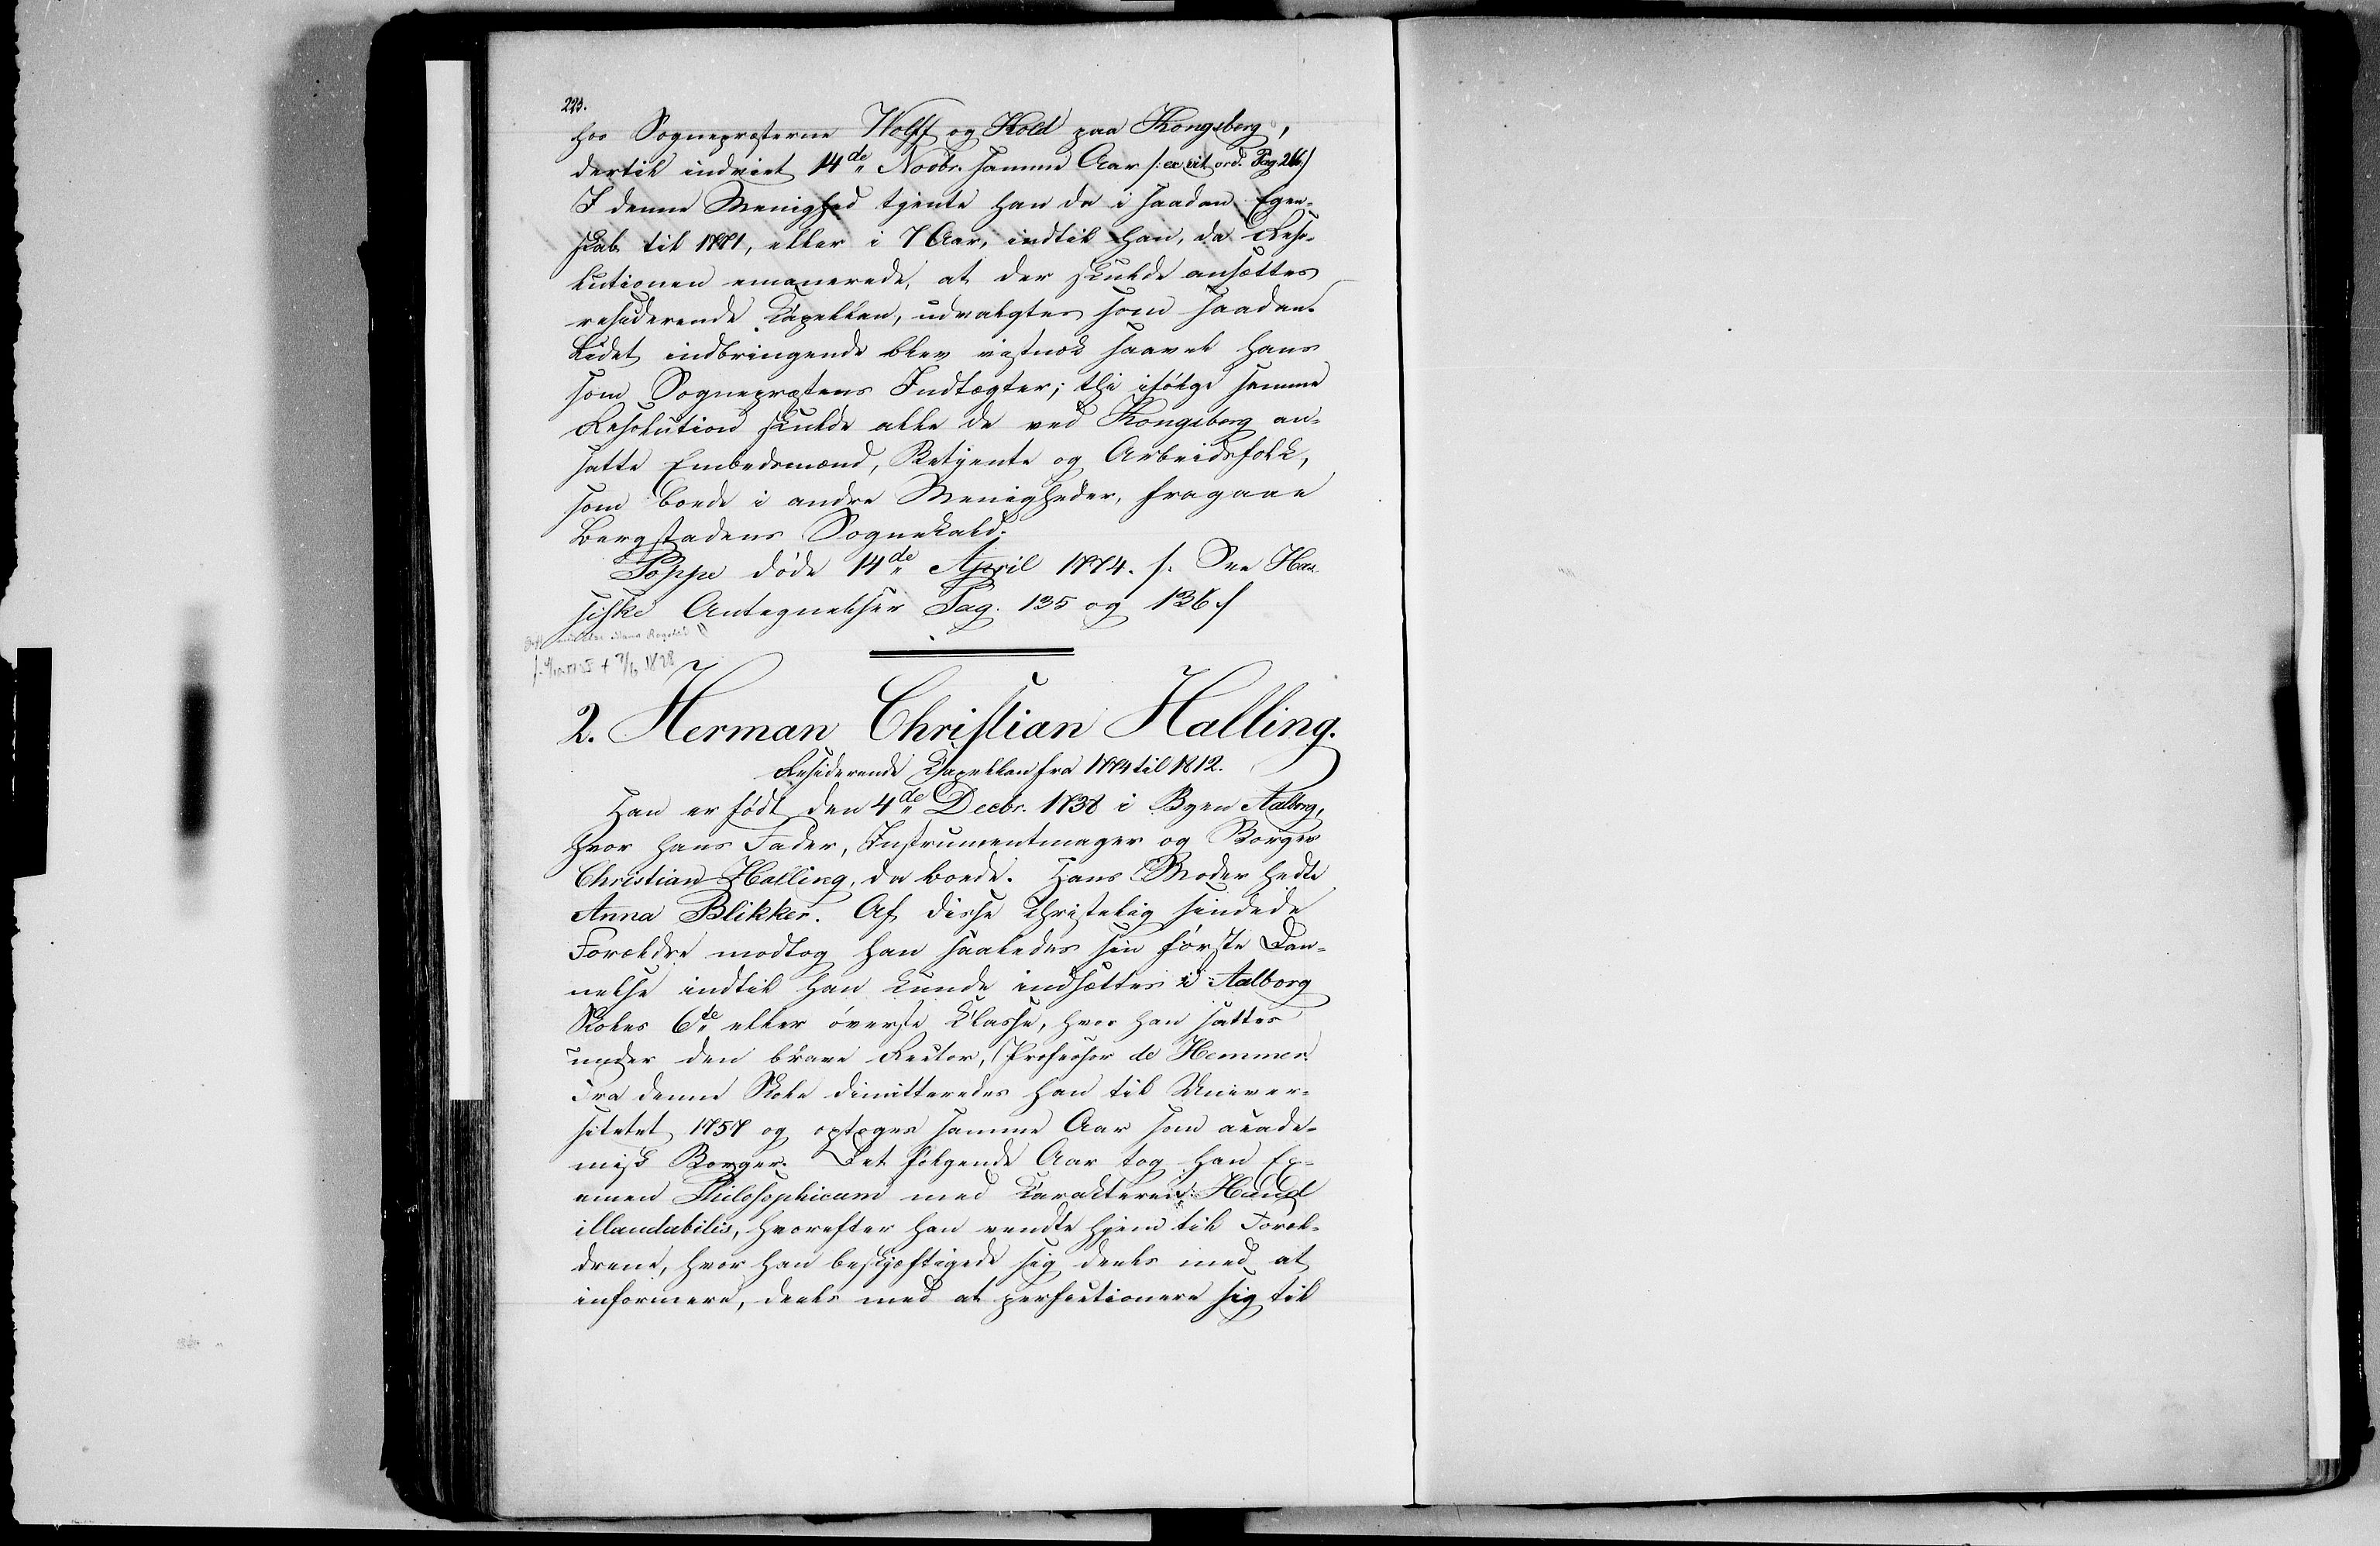 223.
hos Sognepræsterne Wolff og Hold paa Kongsberg,
dertil indviet 14de Novbr. samme Aar /: ex vit. ord. Pag. 216./
I denne Menighed tjente han da i saadan Egen-
skab til 1771, eller i 7 Aar, indtil han, da Reso-
lutionen emanerede, at der skulde ansættes
residerende Kapellan, udvalgtes som saadan.
Lidet indbringende blev vistnok saavel hans
som Sognepræstens Indtægter; thi ifölge samme
Resolution skulde alle de ved Kongsberg an-
satte Embedsmænd, Betjente og Arbeidsfolk,
som boede i andre Menigheder, fragaae
Bergstadens Sognekald.
Poppe döde 14de April 1774. /: See Han-
siske Antegnelser Pag. 135 og 136 :/
2. Herman Christian Halling.
Residerende Kapellan fra 1774 til 1812.
Han er födt den 4de Decbr. 1738 i Byen Aalborg,
hvor hans Fader, Instrumentmager og Borger
Christian Halling, da boede. Hans Moder hedte
Anna Blikker. Af disse Christelig sindede
Forældre modtog han saaledes sin förste Dan-
nelse indtil han kunde indsættes i Aalborg
Skoles 6te eller överste Klasse, hvor han sattes
under den brave Rector, Professor de Hemmer.
Fra denne Skole dimitteredes han til Univer-
sitetet 1757 og optoges samme Aar som acade-
misk Borger. Det fölgende Aar tog han Ex-
amen Philosophicum med Karakteren: Haud
illaudabilis, hvorefter han vendte hjem til Foræl-
drene, hvor han beskjæftigede sig deels med at
informere, deels med at perfectionere sig til